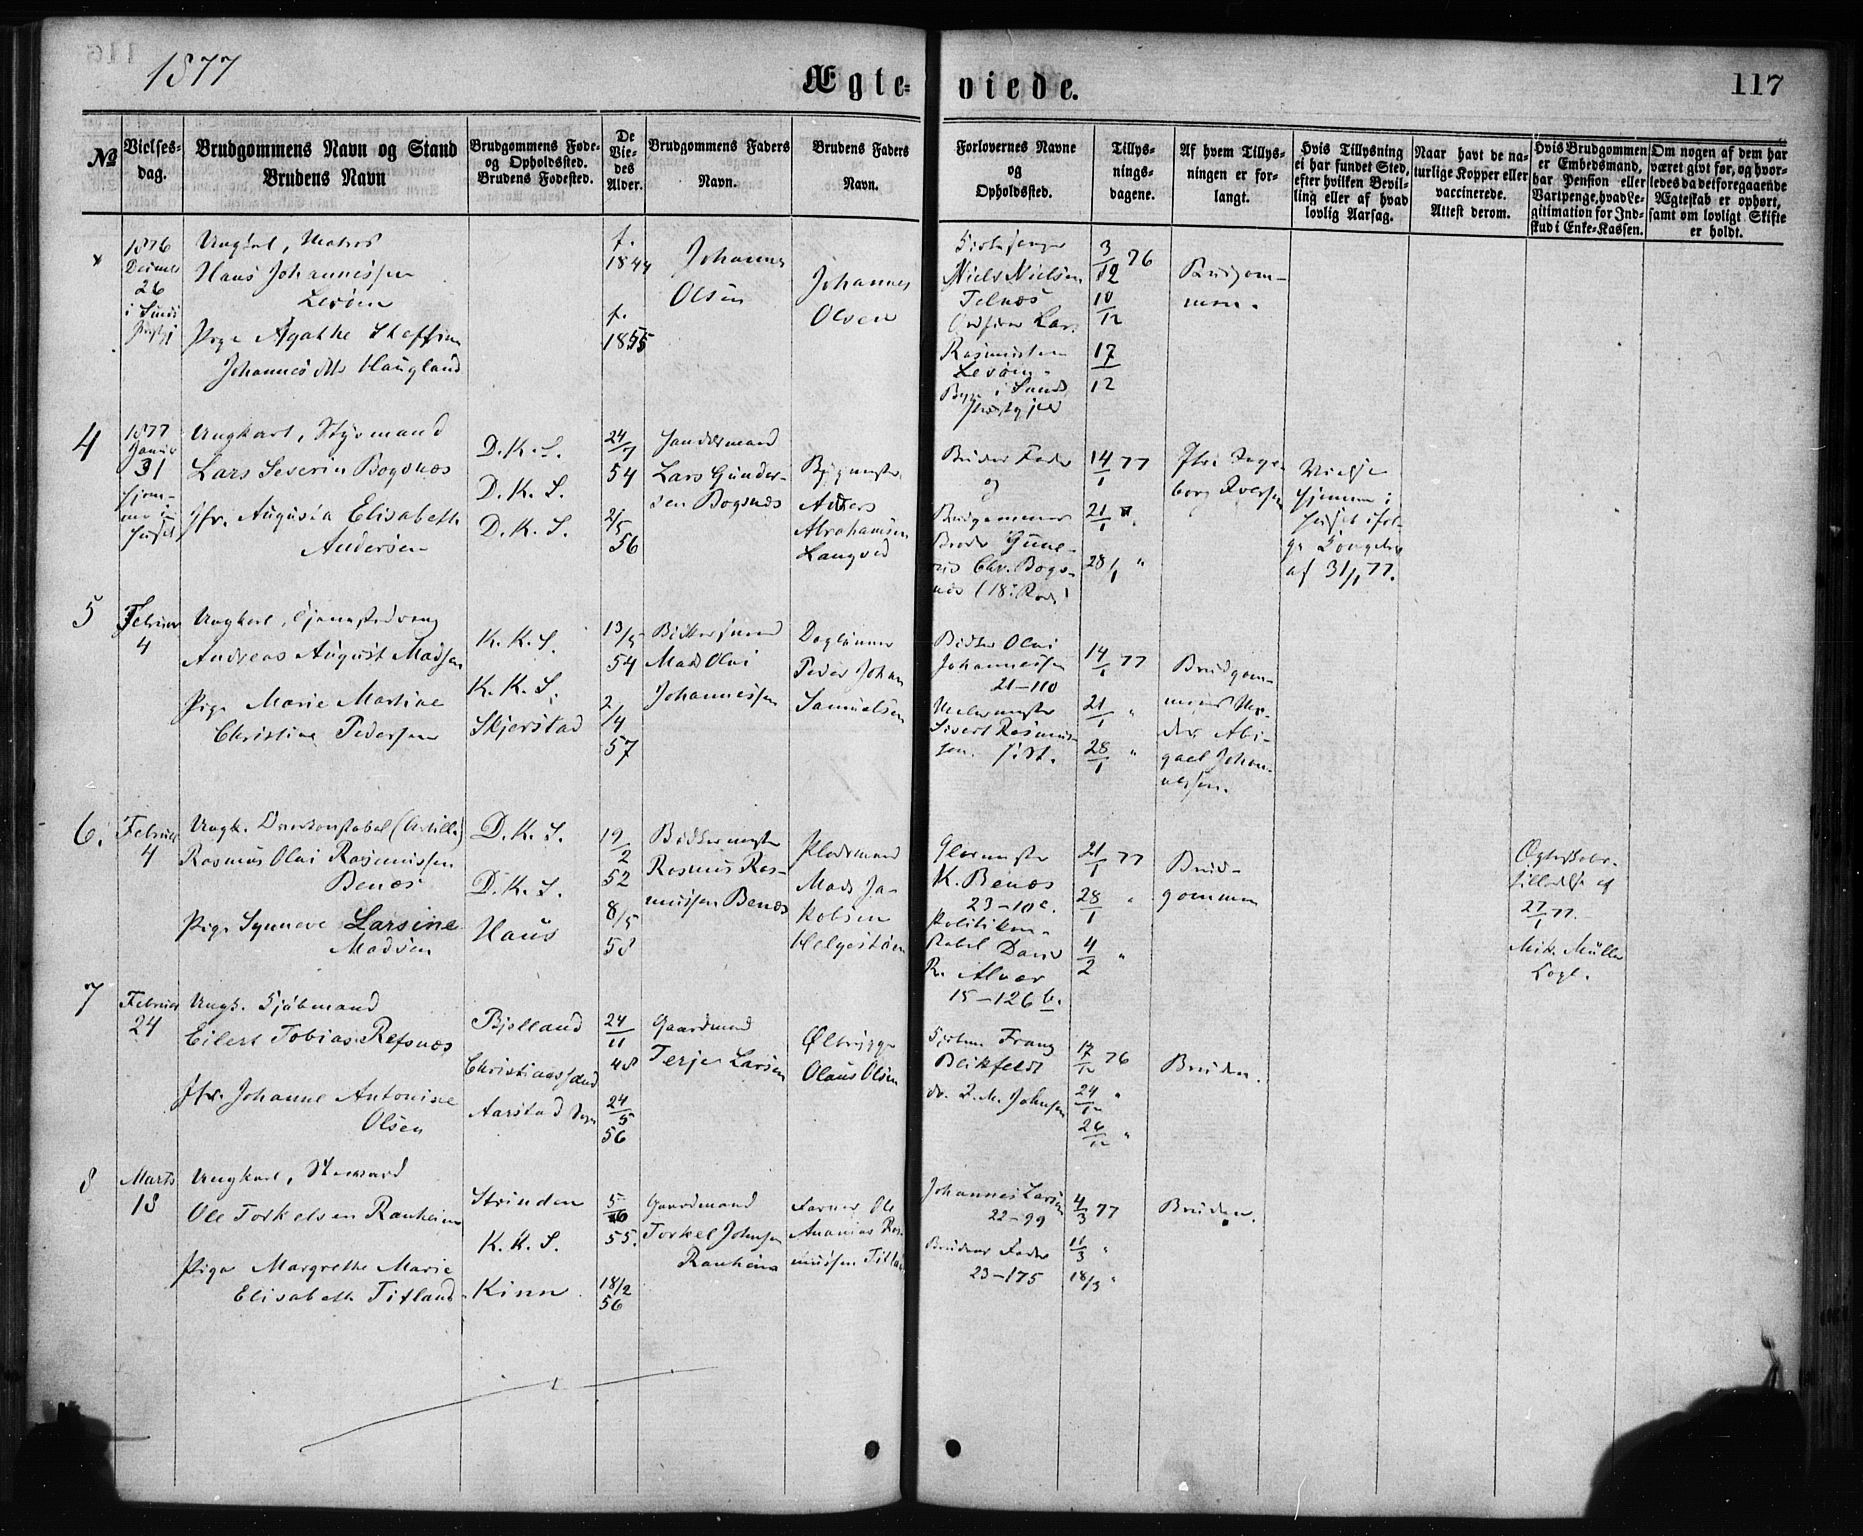 1877
Ægte-
viede.
117
№
Vielses-
dag.
Brudgommens Navn og Stand
Brudens Navn
Brudgommens Føde-
og Opholdssted.
Brudens Fødested.
De
Vie-
des
Alder.
Brudgommens Faders
Navn.
Brudens Faders
Navn.
Forlovernes Navne
og
Opholdssted.
Tillys-
nings-
dagene.
Af hvem Tillys-
ningen er for-
langt.
Hvis Tillysning
ei har fundet Sted,
efter hvilken Bevil-
ling eller af hvad
lovlig Aarsag.
Naar havt de na-
turlige Kopper eller
vaccinerede.
Attest derom.
Hvis Brudgommen
er Embedsmand,
har Pension eller
Vartpenge, hvad Le-
gitimation for Ind-
skud i Enke-Kassen.
Om nogen af dem har
været givt før, og hvor-
ledes da det foregaaende
Ægteskab er ophørt,
samt om lovligt Skifte
er holdt.
1876
26
Ungkarl, Matros
Hans Johannessen
Lerøen
Pige Agathe Steffine
Johannesdtr Haugland
f.
1844
f.
1855
Johannes
Olsen
Johannes
Olsen
Kirkesanger
Niels Nielsen
Telnæs
Rasmussen
Lerøen
3/12 76
10/12
17/12
Brudgom-
men.
4
1877
Januar
31
hjem-
me i
huset
Ungkarl, Styrmand
Lars Severin Bogsnæs
Jfr. Augusta Elisabeth
Andersen
D. K. S.
D. K. S.
D. K. S.
24/7
54
2/5
56
Lars Gunder-
sen Bogsnæs
Anders
Abrahamsen
Langved
Brudens Fader
og
Brudgommens
Broder
Chr. Bogs-
næs
14/1 77
21/1 "
28/1 "
Vielse
hjemme i
huset iføl-
ge Kongebrev
af 31/1 77.
5
Februar
4
Ungkarl,
Andreas August Madsen
Pige Marie Martine
Christine Pedersen
K. K. S.
K. K. S.
Skjerstad
13/5
54
2/4
57
Mads Olai
Johannessen
Dagleiner
Peder Johan
Samuelsen
Bødker Olai
Johannessen
21-110
Sivert Rasmus-
sen
14/1 77
21/1 "
28/1 "
Brudgom-
mens Mo-
der Abi-
gael Johan-
nessen.
6.
Februar
4
Rasmus Olai Rasmussen
Benæs
Pige Synneve Larsine
Madsen
D. K. S.
D. K. S.
Haus
19/2
52
8/5
58
Bødkermester
Rasmus Ras-
mussen Benæs
Pladsmand
Mads Ja-
kobsen
Helgesteen
K. Benæs
23-10c.
R. Alver
15-126b.
21/1 77
28/1 "
4/2 "
Brud-
gommen
tilladelse af
27/1 77.
Müller
7
Februar
24
Ungk. Sjømand
Eilert Tobias Refsnæs
Jfr. Johanne Antonine
Olsen
Bjelland
Christianssand
Aarstad Sogn
24/11
48
24/5
56
Gaardmand
Terje Larsen
Olaus Olsen
Blikfeldt
Johnsen
17/12 76
24/12 "
26/12 "
Bruden.
8
Marts
18
Ungkarl, Steward
Ole Torkelsen Ranheim
Pige Margrethe Marie
Elisabeth Titland
Strinden
K. K. S.
Kinn
5/10
55.
18/2
56
Gaardmand
Torkel Johnsen
Ranheim
Farver Ole
Ananias Ras-
mussen Titland
Johannes Larsen
22-99
Brudens Fader
23-175
4/3 77
11/3 "
18/3 "
Bruden.